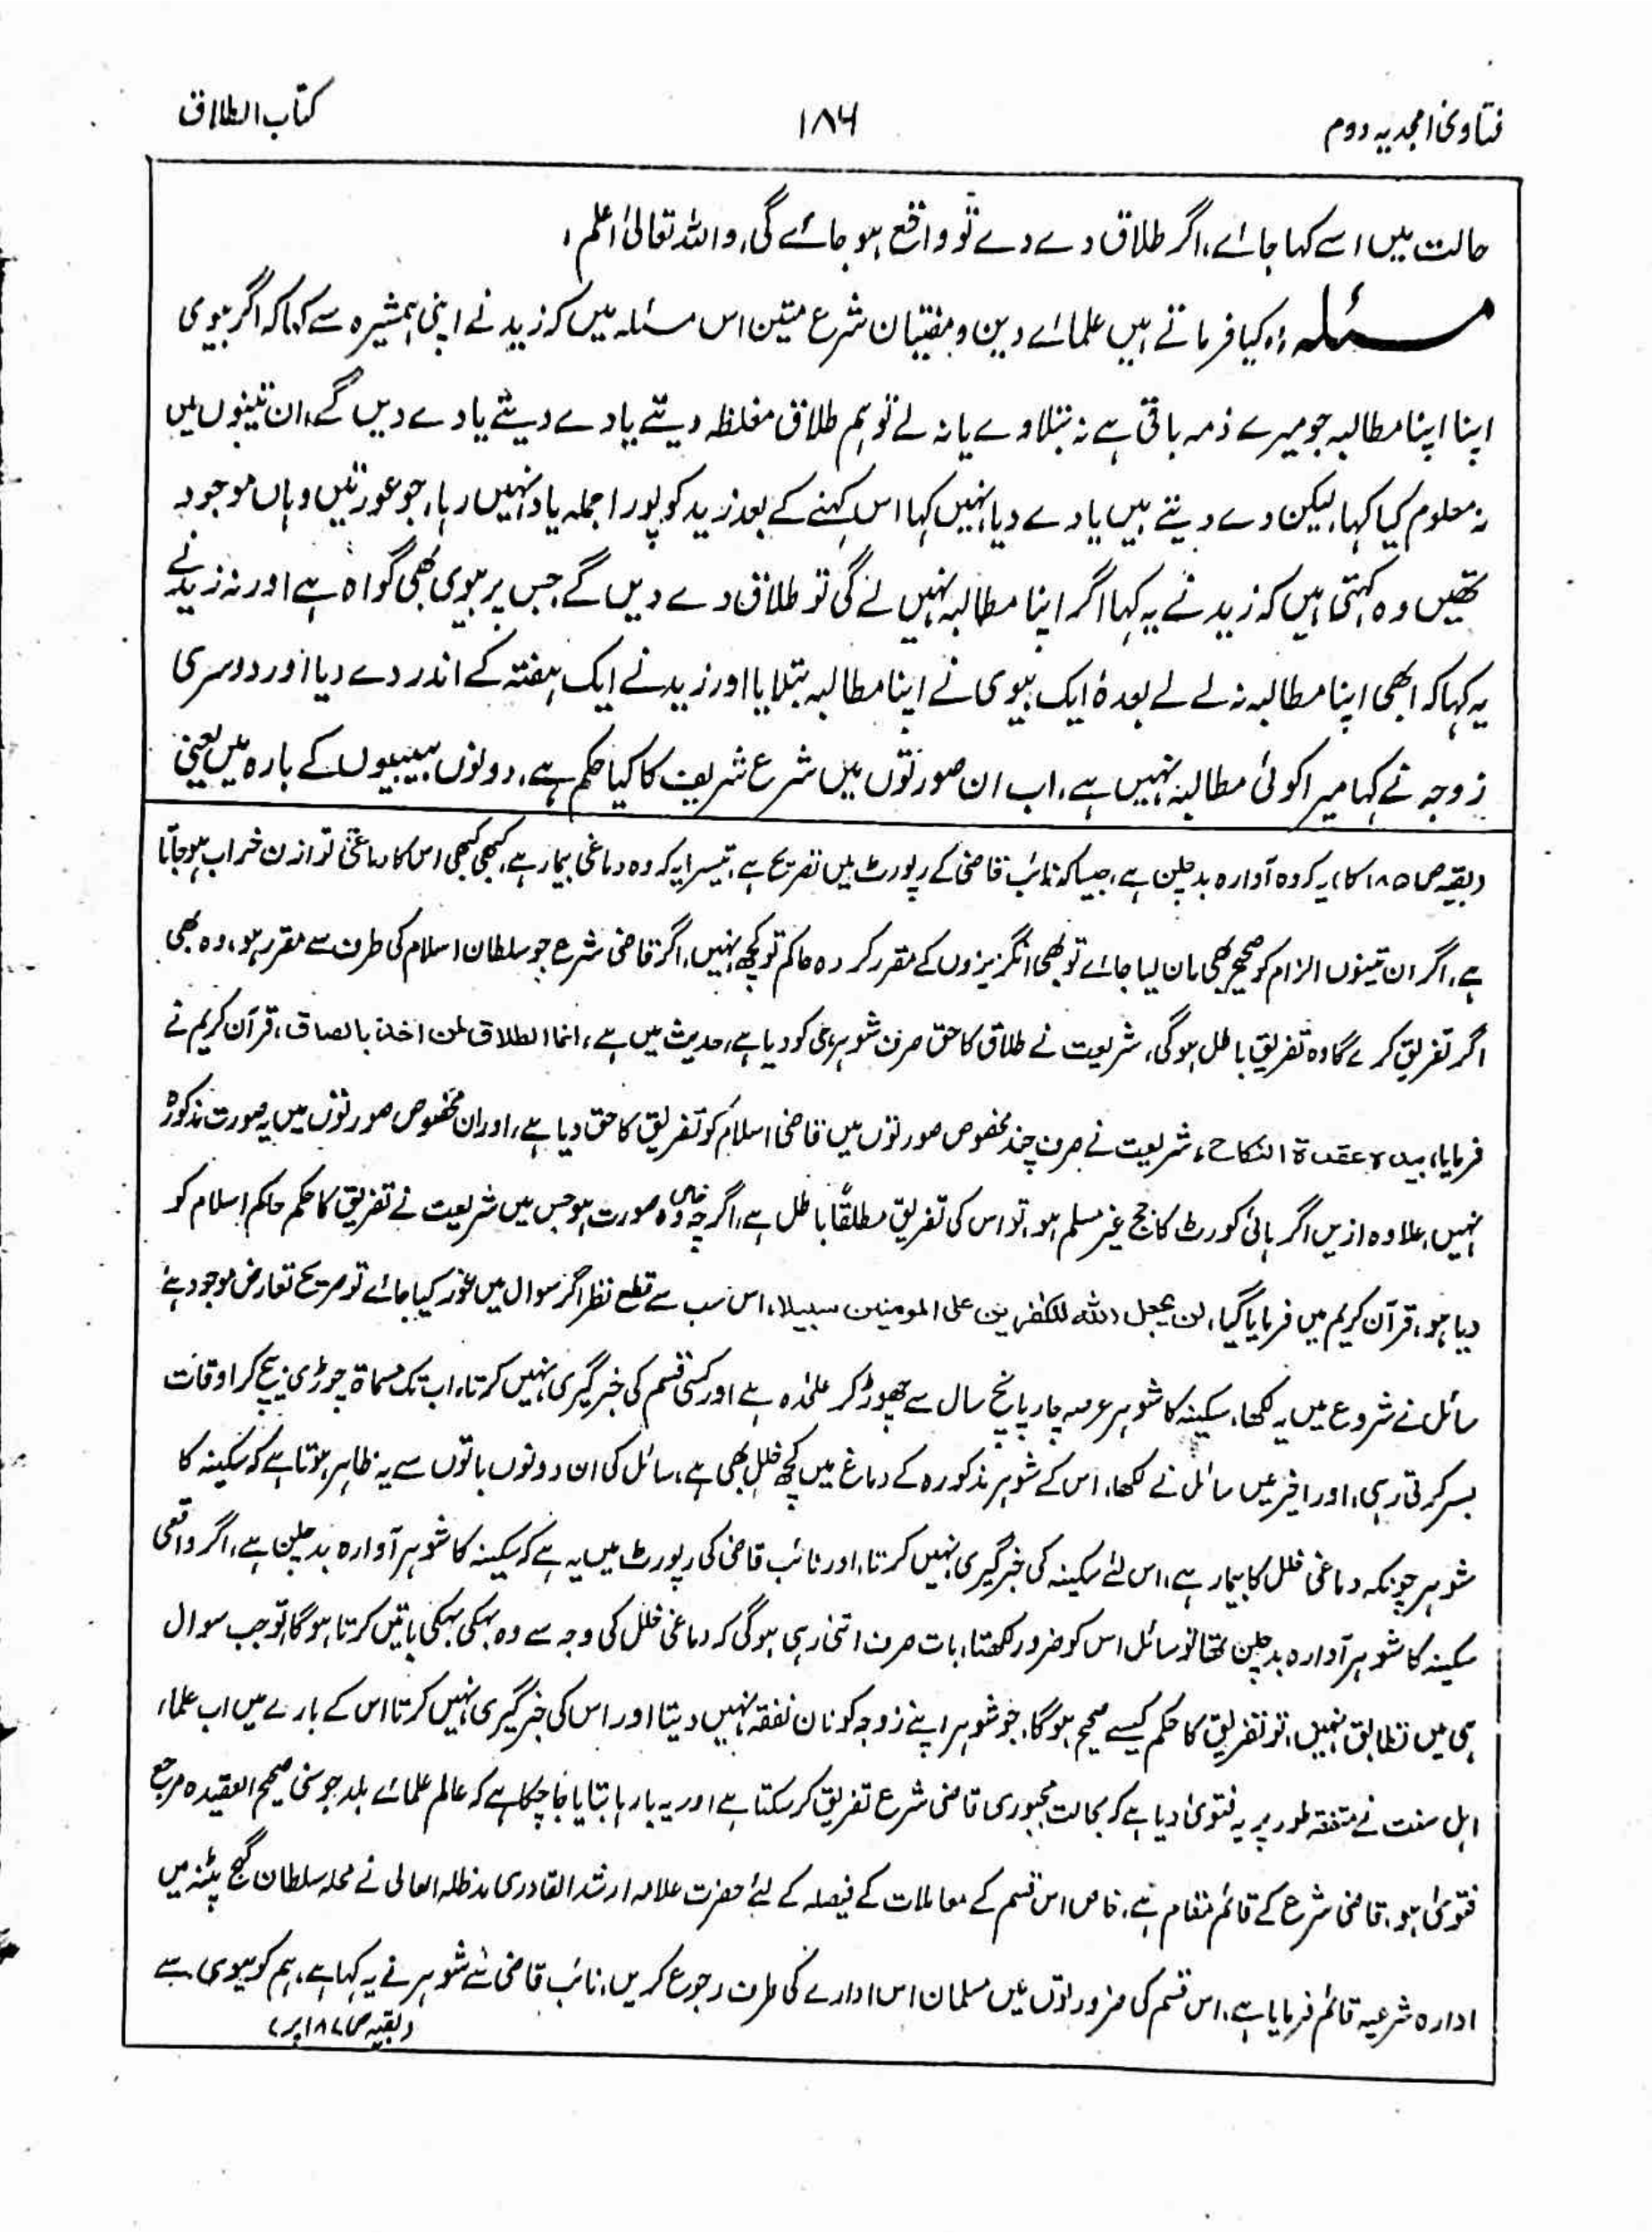 فتاویٰ امجدیہ دوم
۱۸۶
کتاب الطلاق
حالت میں اسے کہا جائے، اگر طلاق دے دے تو واقع ہو جائے گی، واللہ تعالیٰ اعلم،
مسئلہ:۔ کیا فرماتے ہیں علمائے دین و مفتیان شرع متین اس مسئلہ میں کہ زید نے اپنی ہمشیرہ سے کہا کہ اگر بیوی
اپنا اپنا مطالبہ جو میرے ذمہ باقی ہے نہ بتلاوے یا نہ لے تو ہم طلاق مغلظہ دیتے یا دے دیتے یا دے دیں گے، ان تینوں میں
نہ معلوم کیا کہا، لیکن دے دیتے ہیں یا دے دیا نہیں کہا اس کہنے کے بعد زید کو پورا جملہ یاد نہیں رہا، جو عورتیں وہاں موجود
تھیں وہ کہتی ہیں کہ زید نے یہ کہا اگر اپنا مطالبہ نہیں لے گی تو طلاق دے دیں گے، جس پر بیوی بھی گواہ ہے اور نہ زید نے
یہ کہا کہ ابھی اپنا مطالبہ نہ لے لے بعدہٗ ایک بیوی نے اپنا مطالبہ بتلایا اور زید نے ایک ہفتہ کے اندر دے دیا اور دوسری
زوجہ نے کہا میرا کوئی مطالبہ نہیں ہے، اب ان صورتوں میں شرع شریف کا کیا حکم ہے، دونوں بیبیوں کے بارہ میں یعنی
(بقیہ ص ۱۸۵ کا) یہ کہ وہ آوارہ بدچلن ہے، جیسا کہ نائب قاضی کے رپورٹ میں تصریح ہے، تیسرا یہ کہ وہ دماغی بیمار ہے، کبھی کبھی اس کا دماغی توازن خراب ہو جاتا
ہے، اگر ان تینوں الزام کو صحیح بھی مان لیا جائے تو بھی انگریزوں کے مقرر کردہ حاکم تو کچھ نہیں، اگر قاضی شرع جو سلطان اسلام کی طرف سے مقرر ہو، وہ بھی
اگر تفریق کرے گا وہ تفریق باطل ہوگی، شریعت نے طلاق کا حق صرف شوہر ہی کو دیا ہے، حدیث میں ہے، انما الطلاق لمن اخذ بالساق، قرآن کریم نے
فرمایا، بیدہ عقدۃ النکاح، شریعت نے صرف چند مخصوص صورتوں میں قاضی اسلام کو تفریق کا حق دیا ہے، اور ان مخصوص صورتوں میں یہ صورت مذکورہ
نہیں، علاوہ ازیں اگر ہائی کورٹ کا جج غیر مسلم ہو، تو اس کی تفریق مطلقاً باطل ہے، اگرچہ وہ خاص صورت ہو جس میں شریعت نے تفریق کا حکم حاکم اسلام کو
دیا ہو، قرآن کریم میں فرمایا گیا، لن یجعل اللہ للکٰفرین علی المومنین سبیلا، اس سب سے قطع نظر اگر سوال میں غور کیا جائے تو صریح تعارض موجود ہے،
سائل نے شروع میں یہ لکھا، سکینہ کا شوہر عرصہ چار پانچ سال سے چھوڑ کر علٰحدہ ہے اور کسی قسم کی خبرگیری نہیں کرتا، اب تک مسماۃ چوڑی بیچ کر اوقات
بسر کرتی رہی، اور اخیر میں سائل نے لکھا، اس کے شوہر مذکورہ کے دماغ میں کچھ خلل بھی ہے، سائل کی ان دونوں باتوں سے یہ ظاہر ہوتا ہے کہ سکینہ کا
شوہر چونکہ دماغی خلل کا بیمار ہے، اس لئے سکینہ کی خبرگیری نہیں کرتا، اور نائب قاضی کی رپورٹ میں یہ ہے کہ سکینہ کا شوہر آوارہ بدچلن ہے، اگر واقعی
سکینہ کا شوہر آوارہ بدچلن تھا تو سائل اس کو ضرور لکھتا، بات صرف اتنی رہی ہوگی کہ دماغی خلل کی وجہ سے وہ بہکی بہکی باتیں کرتا ہوگا، تو جب سوال
ہی میں تطابق نہیں، تو تفریق کا حکم کیسے صحیح ہوگا، جو شوہر اپنے زوجہ کو نان نفقہ نہیں دیتا اور اس کی خبرگیری نہیں کرتا اس کے بارے میں اب علماء
اہل سنت نے متفقہ طور پر یہ فتویٰ دیا ہے کہ بحالت مجبوری قاضی شرع تفریق کر سکتا ہے اور یہ بارہا بتایا جا چکا ہے کہ عالم علمائے بلد جو سنی صحیح العقیدہ مرجع
فتویٰ ہو، قاضی شرع کے قائم مقام ہے، خاص اس قسم کے معاملات کے فیصلہ کے لئے حضرت علامہ ارشد القادری مدظلہ العالی نے محلہ سلطان گنج پٹنہ میں
ادارہ شرعیہ قائم فرمایا ہے، اس قسم کی ضرورتوں میں مسلمان اس ادارے کی طرف رجوع کریں، نائب قاضی سے شوہر نے یہ کہا ہے، ہم کو بیوی سے
(بقیہ ص ۱۸۷ پر)